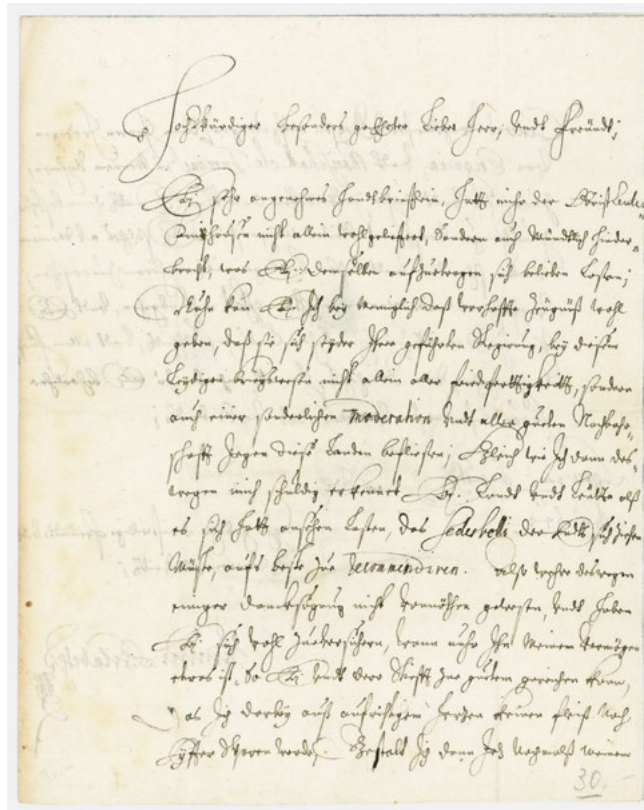 Hochwürdiger besonders geEhrter Lieber Herr, undt Freündt;
E: sehr angenehmes Handtbriefflein, hatt mihr der Obrist Leuten:
nicht allein wohl geliefert, Sondern auch Mündtlich hinder-
bracht, was E: demselben aufzuetragen sich belieben Lasten;
Nuhn kan E: Ich bey Menniglich daß Zeügnüß wohl
geben, daß sie sich seyder Ihrer geführten Regirung, bey diesem
Leydigen Kriegswesen nicht allein aller friedtfertigkeitt, sondern
auch einer sonderlichen Moderation undt aller gueten Nachbahr-
schafft gegen diese Landen beflissen; Gleich wie Ich dann des-
wegen mich schuldig erkennet E: Landt undt Leüthe alß
es sich hatt ansehen Lasten, das Sedes belli der Endts sich ziehen
Müste, aufs beste zue recommendiren. Also wehre deswegen
einiger Dancksagung nicht vonnöthen gewesen, undt haben
E: sich wohl zueversichern, wann nuhr Ihn Meinem Vermögen
etwas ist, so E: undt dero Stifft zue guetem gereichen kann,
das Ich darbey auß aufrichtigem Hertzen keinen fleiß noch
Eyffer Sparen werde. Gestalt Ich dann Jetz nochmalß meinem
30.